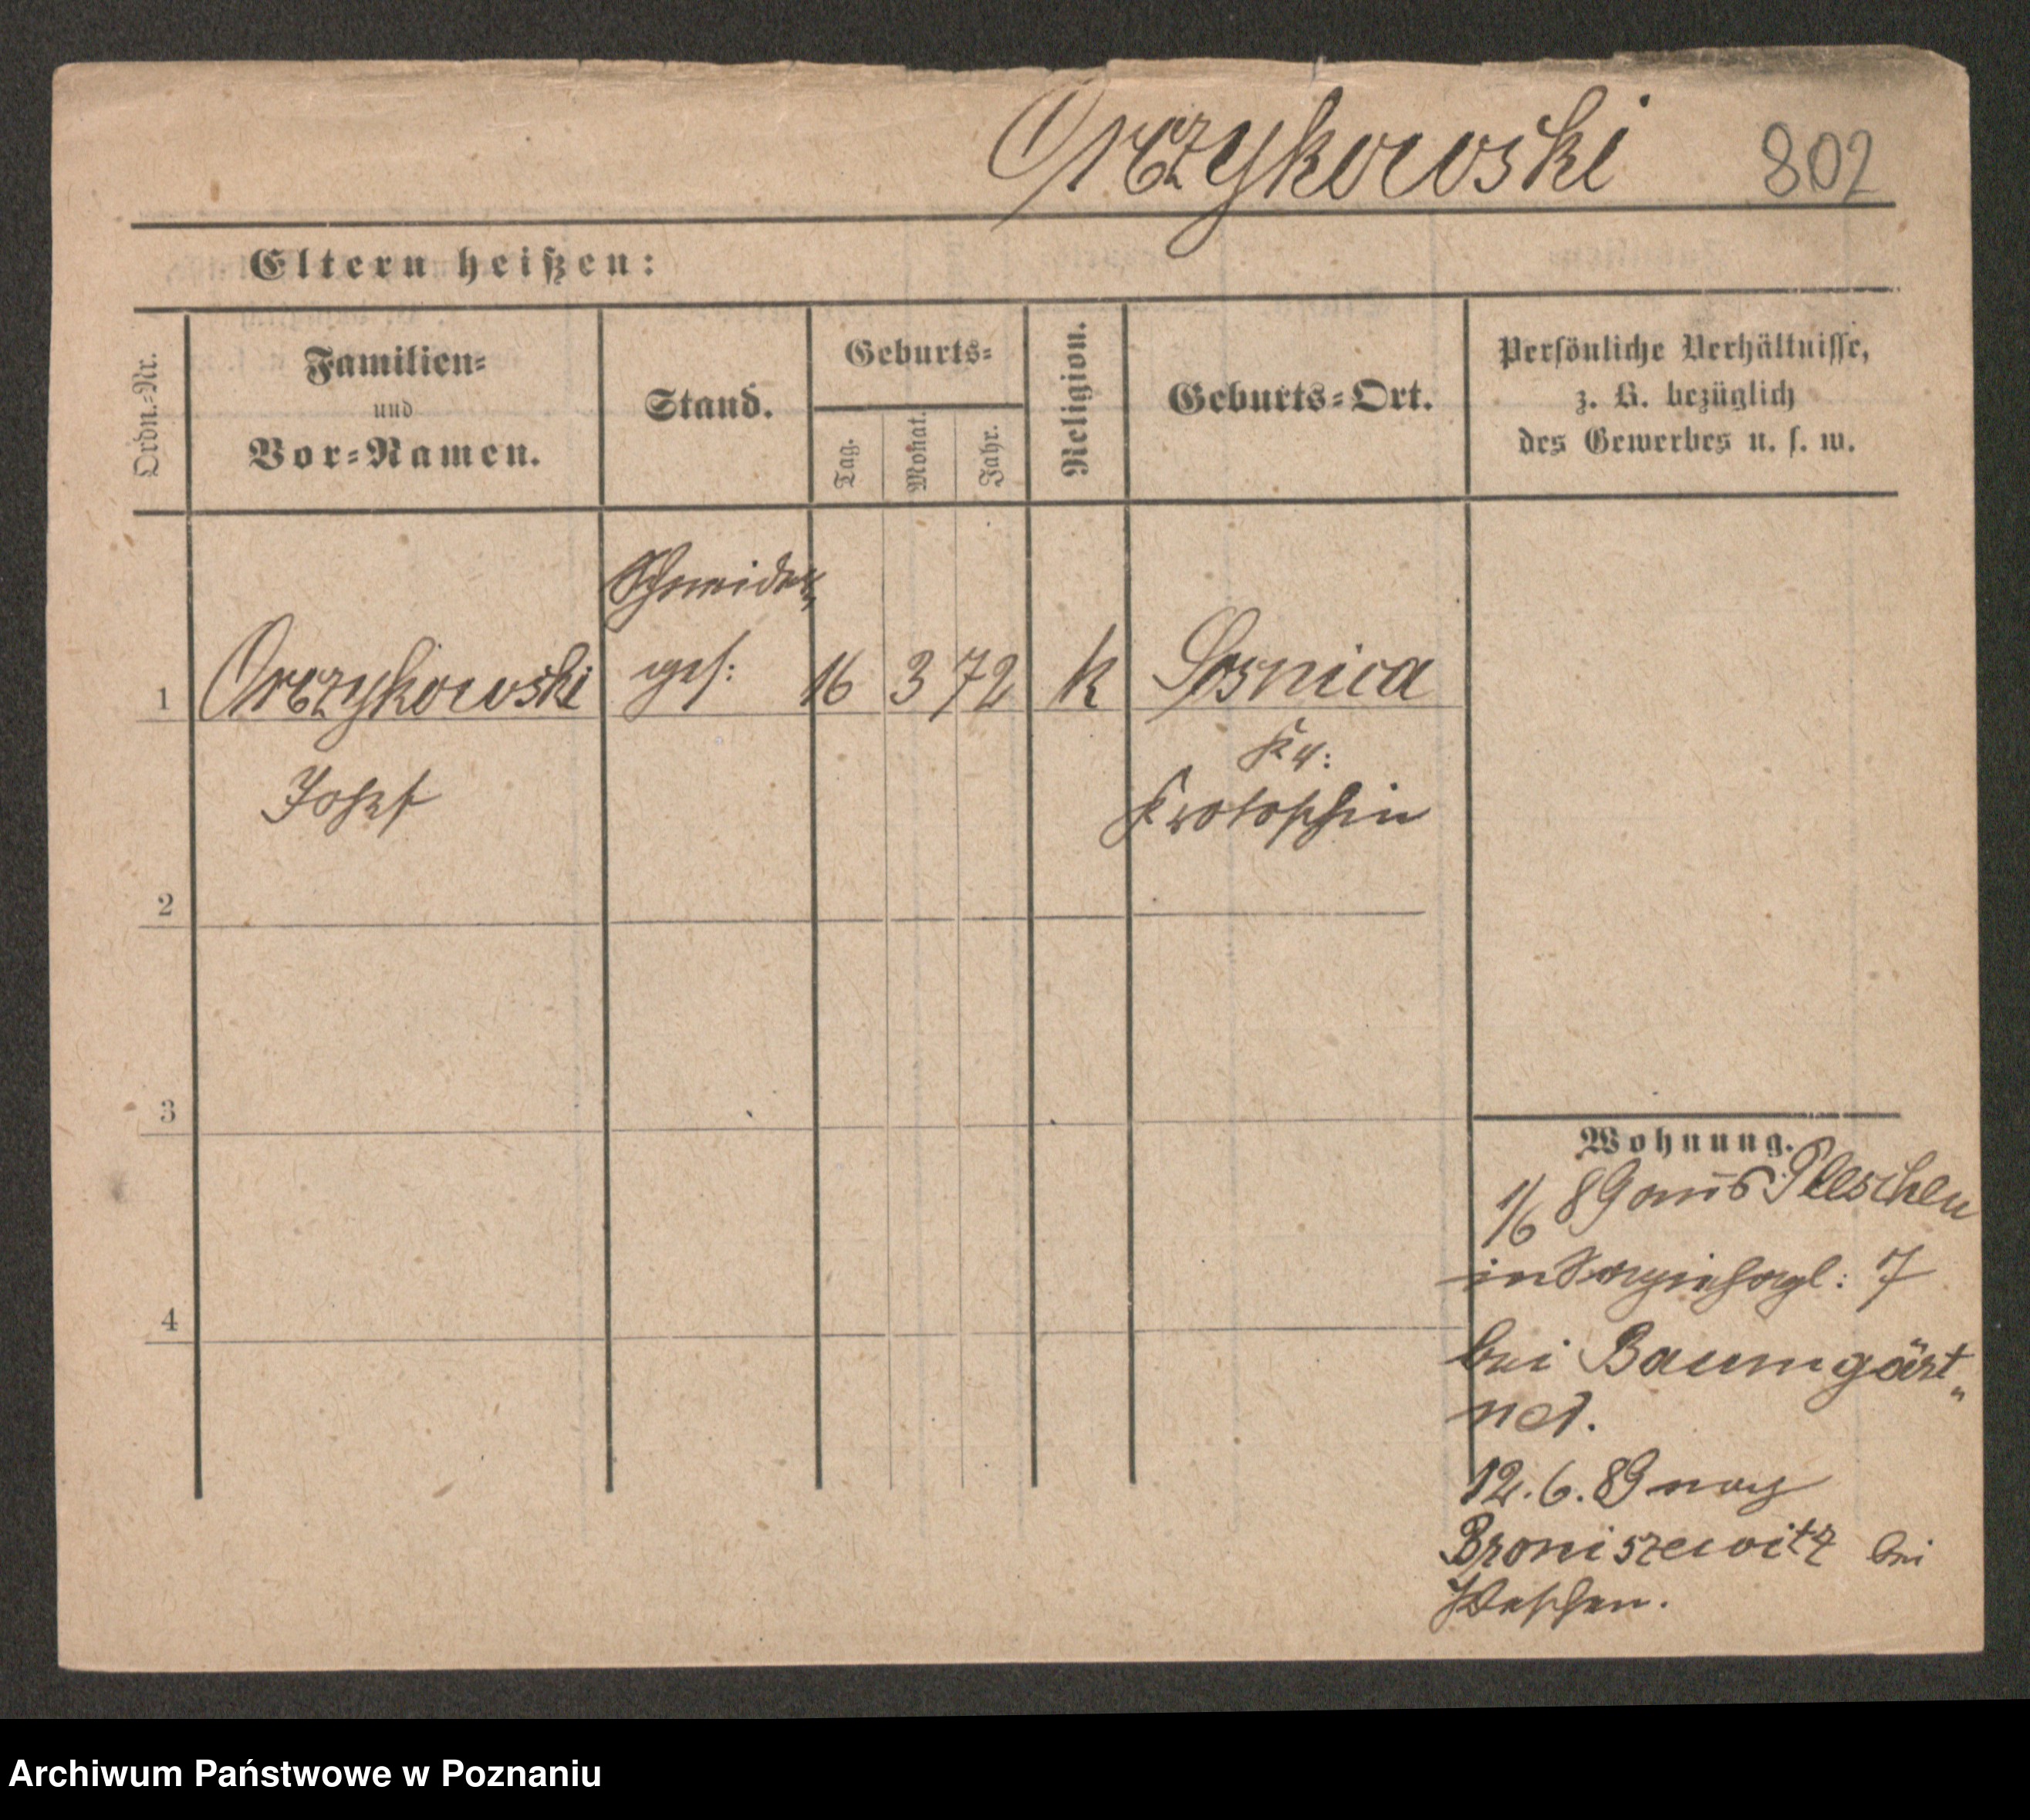 Orczykowski 802
Eltern heißen:
Ordn.-Nr.
Familien-
und
Vor-Namen.
Stand.
Geburts-
Tag.
Monat.
Jahr.
Religion.
Geburts-Ort.
Persönliche Verhältnisse,
z. B. bezüglich
des Gewerbes u. s. w.
Schneider„
1 Orczykowski ges: 16 3 72 k Sosnica
Kr:
Josef Krotoschin
2
3
4
Wohnung.
1/6 89 aus Pleschen
in 7
bei Baumgärt„
ner.
12. 6. 89 nach
Broniszewitz bei
Pleschen.
Archiwum Państwowe w Poznaniu